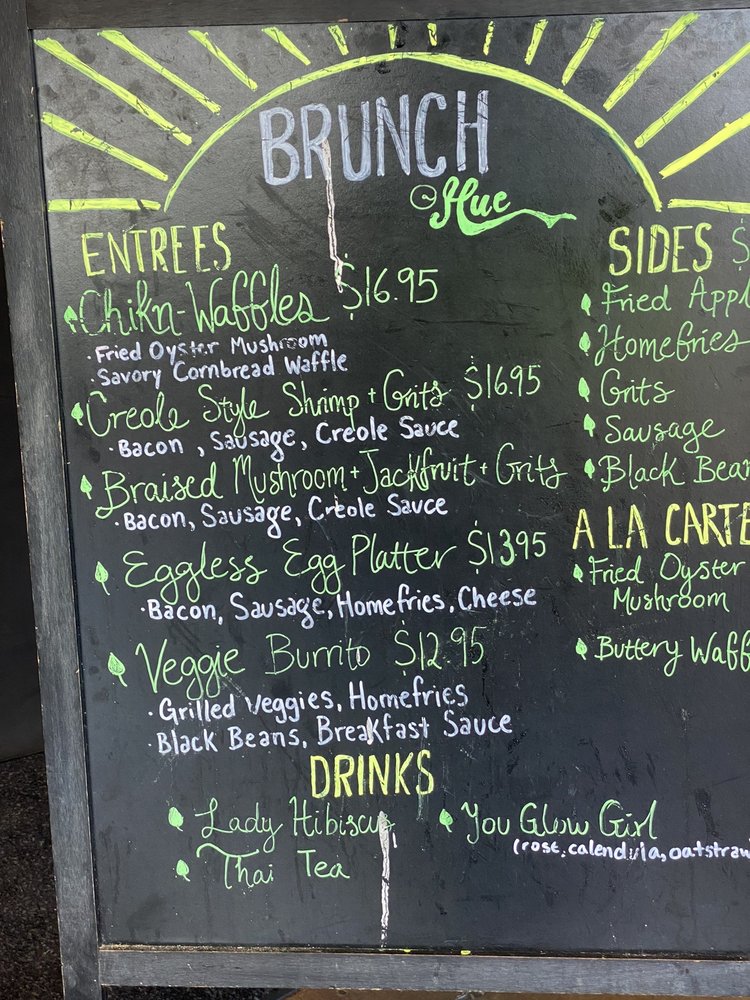 BRUNCH
@Hue
ENTREES
Chikn-Waffles $16.95
·Fried Oyster Mushroom
·Savory Cornbread Waffle
Creole Style Shrimp + Grits $16.95
·Bacon, Sausage, Creole Sauce
Braised Mushroom + Jackfruit + Grits
·Bacon, Sausage, Creole Sauce
Eggless Egg Platter $13.95
·Bacon, Sausage, Homefries, Cheese
Veggie Burrito $12.95
·Grilled Veggies, Homefries
·Black Beans, Breakfast Sauce
SIDES $
Fried Appl
Homefries
Grits
Sausage
Black Bean
A LA CARTE
Fried Oyster
Mushroom
Buttery Waff
DRINKS
Lady Hibiscus
Thai Tea
You Glow Girl
(rose, calendula, oatstraw